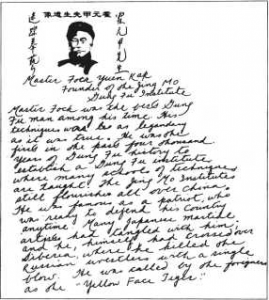 像遺生先甲元霍
Master Fock Yuen Kap
Founder of the Jing Mo
Gung Fu Institute
Master Fock was the best Gung
Fu man among his time. His
techniques was too as legendary
as it was true. He was the
first in the past four thousand
years of Gung Fu history to
establish a Gung Fu institute
where many schools of techniques
are taught. The Jing Mo Institutes
still flourishes all over China.
He was famous as a patriot, who
was ready to defend his country
anytime. Many Japanese martial
artists had tangled with him,
and he, himself, had crossed over
Siberia, where he killed one
Russian wrestlers with a single
blow. He was called by the foreigners
as the "Yellow Face Tiger"